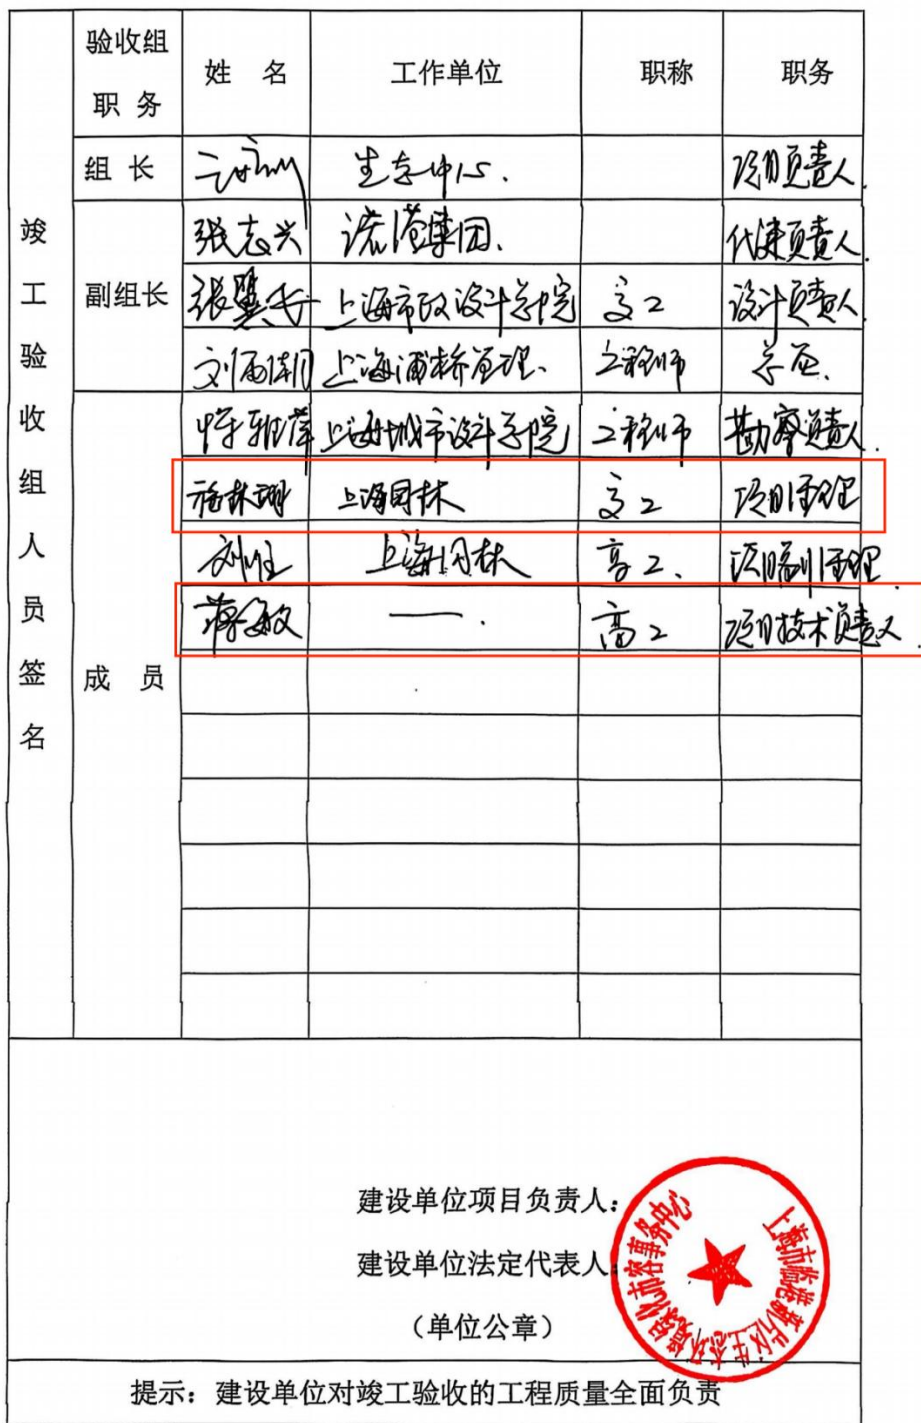 竣工验收组人员签名
验收组职务 姓名 工作单位 职称 职务
组长 生态中心. 项目负责人.
副组长
张志兴 港集团. 代建负责人.
张翼 上海市政设计研究院 高工 设计负责人.
上海浦桥管理. 工程师 总监.
成员
上海城市设计研究院 工程师 勘察负责人.
林 上海园林 高工 项目经理
刘 上海园林 高工. 项目副经理
蒋敏 —. 高工 项目技术负责人.
建设单位项目负责人:
建设单位法定代表人:
(单位公章)
上海市临港新片区生态环境绿化市容事务中心
提示:建设单位对竣工验收的工程质量全面负责